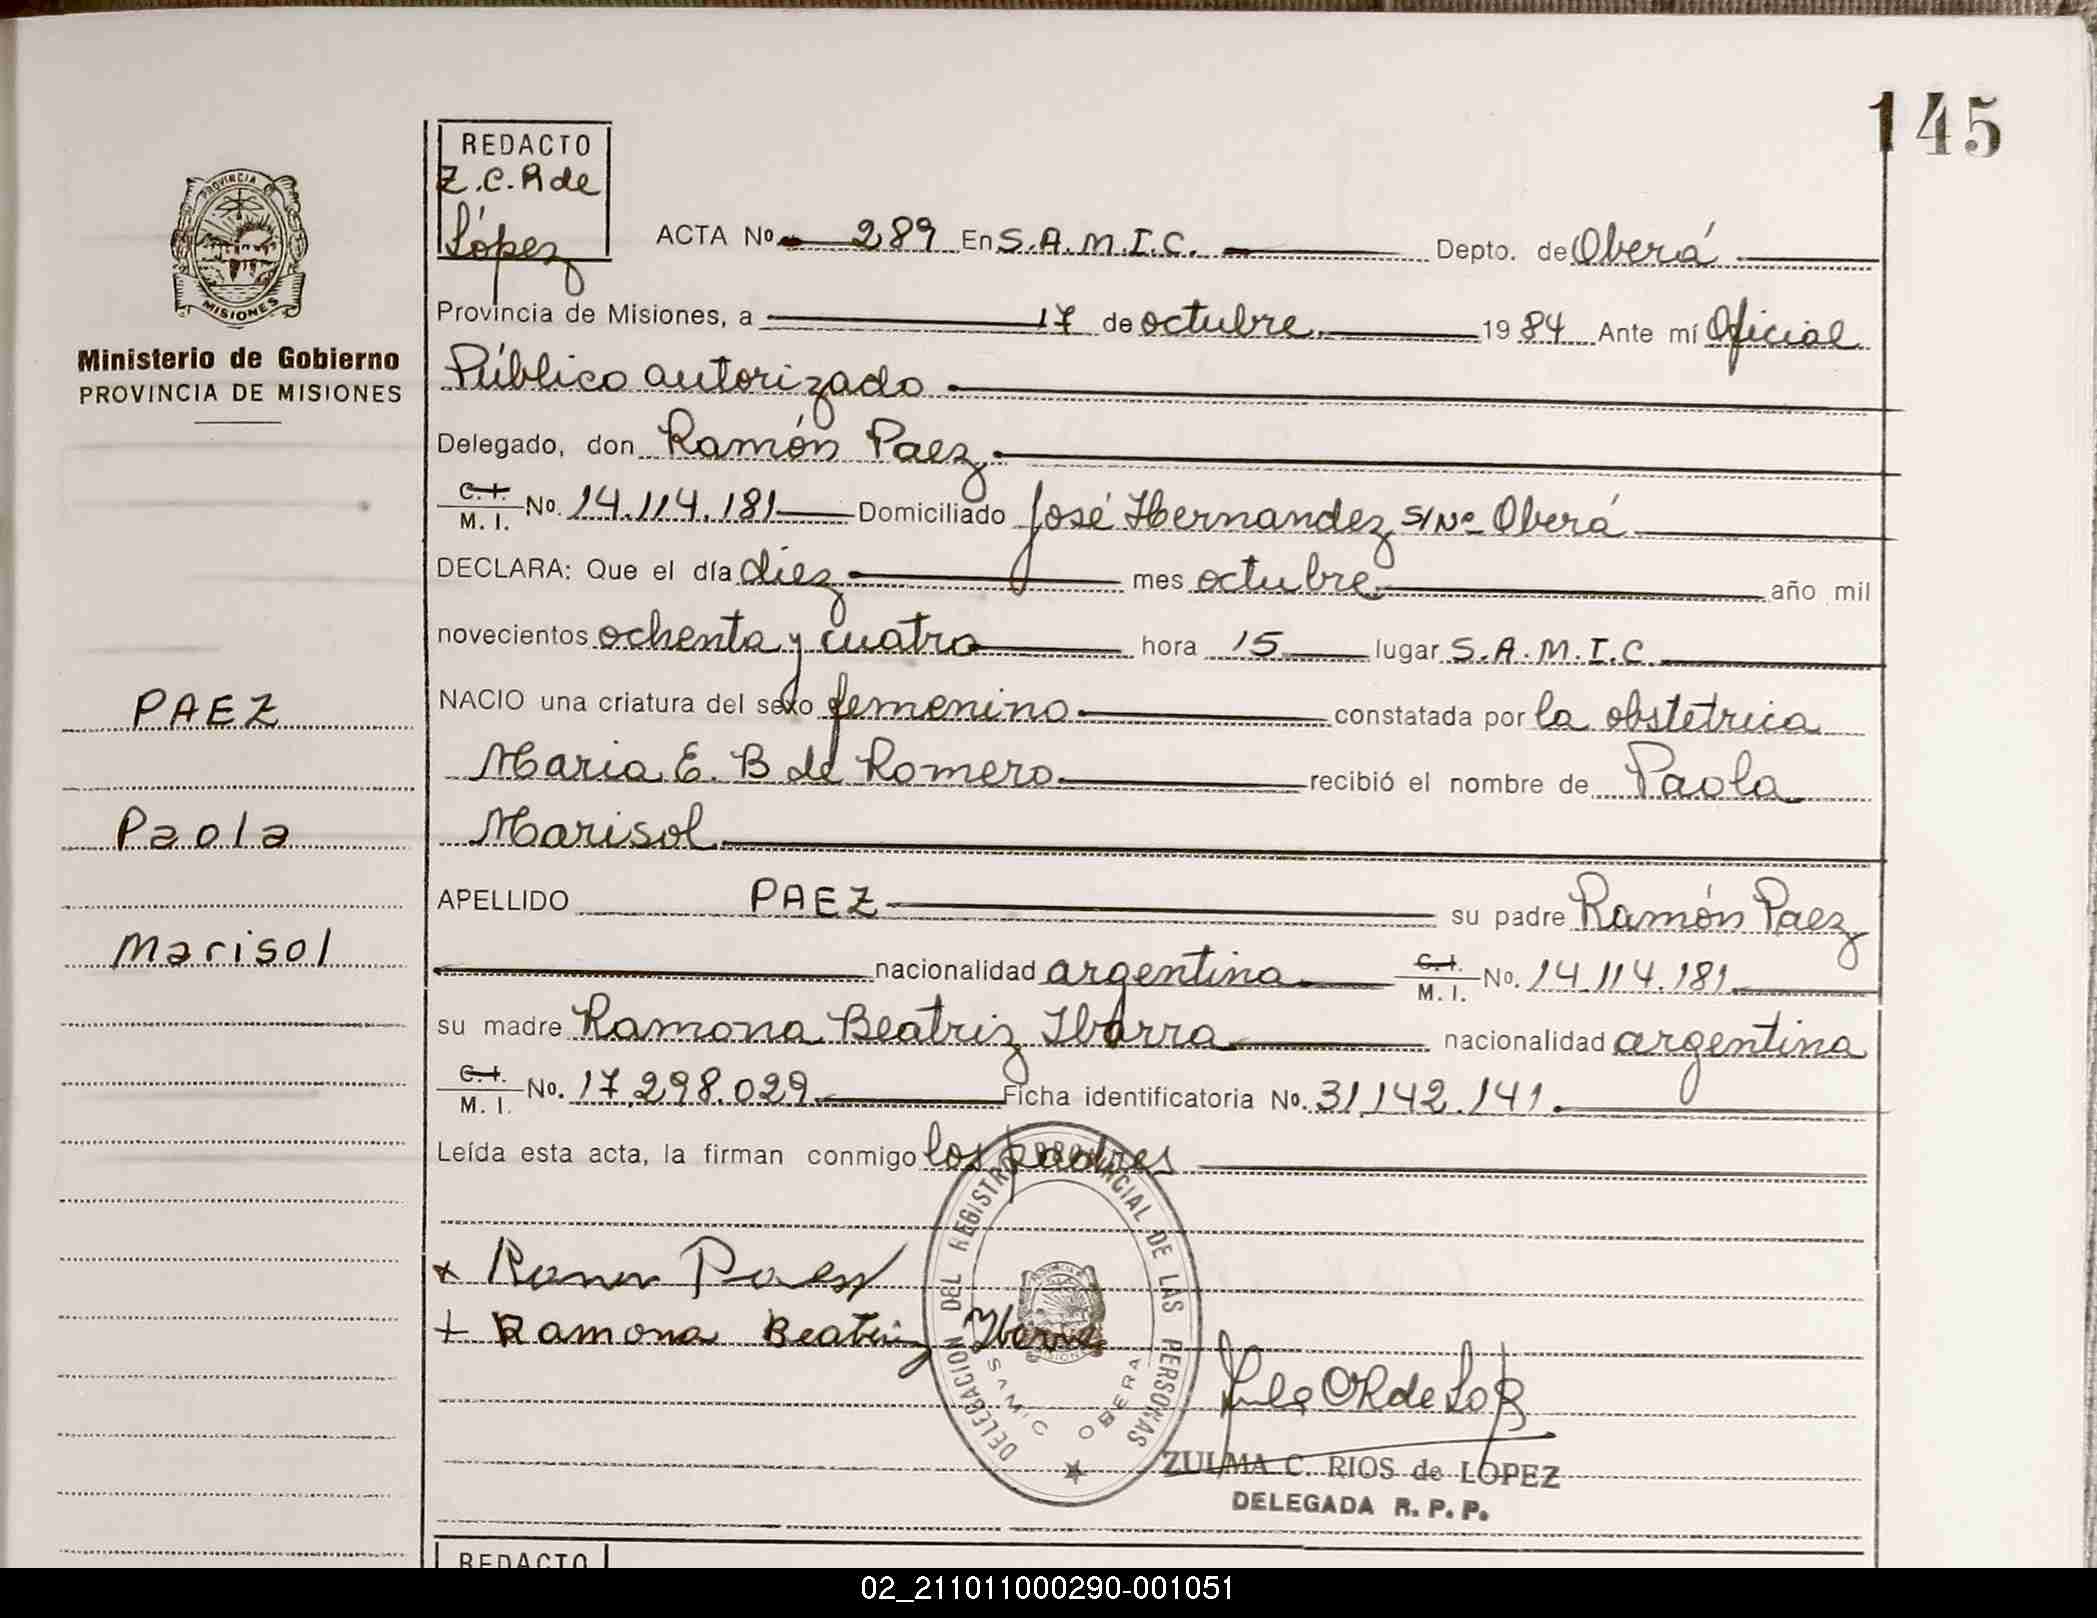 145
REDACTO
Z.C.R de
López
PROVINCIA DE
MISIONES
Ministerio de Gobierno
PROVINCIA DE MISIONES
ACTA No. 289 En S.A.M.I.C. Depto. de Oberá
Provincia de Misiones, a 17 de octubre 1984 Ante mí Oficial
Público autorizado
Delegado, don Ramón Paez
C.I. M.I. No. 14.114.181 Domiciliado José Hernandez S/No Oberá
DECLARA: Que el día diez mes octubre año mil
novecientos ochenta y cuatro hora 15 lugar S.A.M.I.C.
NACIO una criatura del sexo femenino constatada por la obstetrica
Maria E. B de Romero recibió el nombre de Paola
Marisol
APELLIDO PAEZ su padre Ramón Paez
nacionalidad argentina C.I. M.I. No. 14.114.181
su madre Ramona Beatriz Ibarra nacionalidad argentina
C.I. M.I. No. 17.298.029 Ficha identificatoria No. 31.142.141.
Leída esta acta, la firman conmigo los padres
PAEZ
Paola
Marisol
x Ramon Paez
+ Ramona Beatriz Ibarra
DELEGACION DEL REGISTRO PROVINCIAL DE LAS PERSONAS
SAMIC OBERA
ZULMA C. RIOS de LOPEZ
DELEGADA R. P. P.
REDACTO
02_211011000290-001051